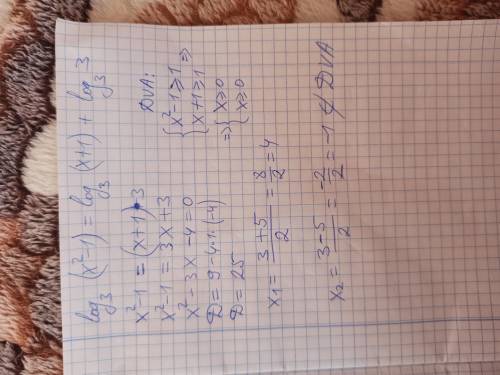 log₃(x²-1) = log₃(x+1) + log₃3
x²-1 = (x+1)·3
x²-1 = 3x+3
x²-3x-4=0
D = 9-4·1·(-4)
D = 25
x₁ = (3+5)/2 = 8/2 = 4
x₂ = (3-5)/2 = -2/2 = -1 ∉ DVA
DVA:
{x²-1≥1
{x+1≥1 =>
=> {x≥0
{x≥0